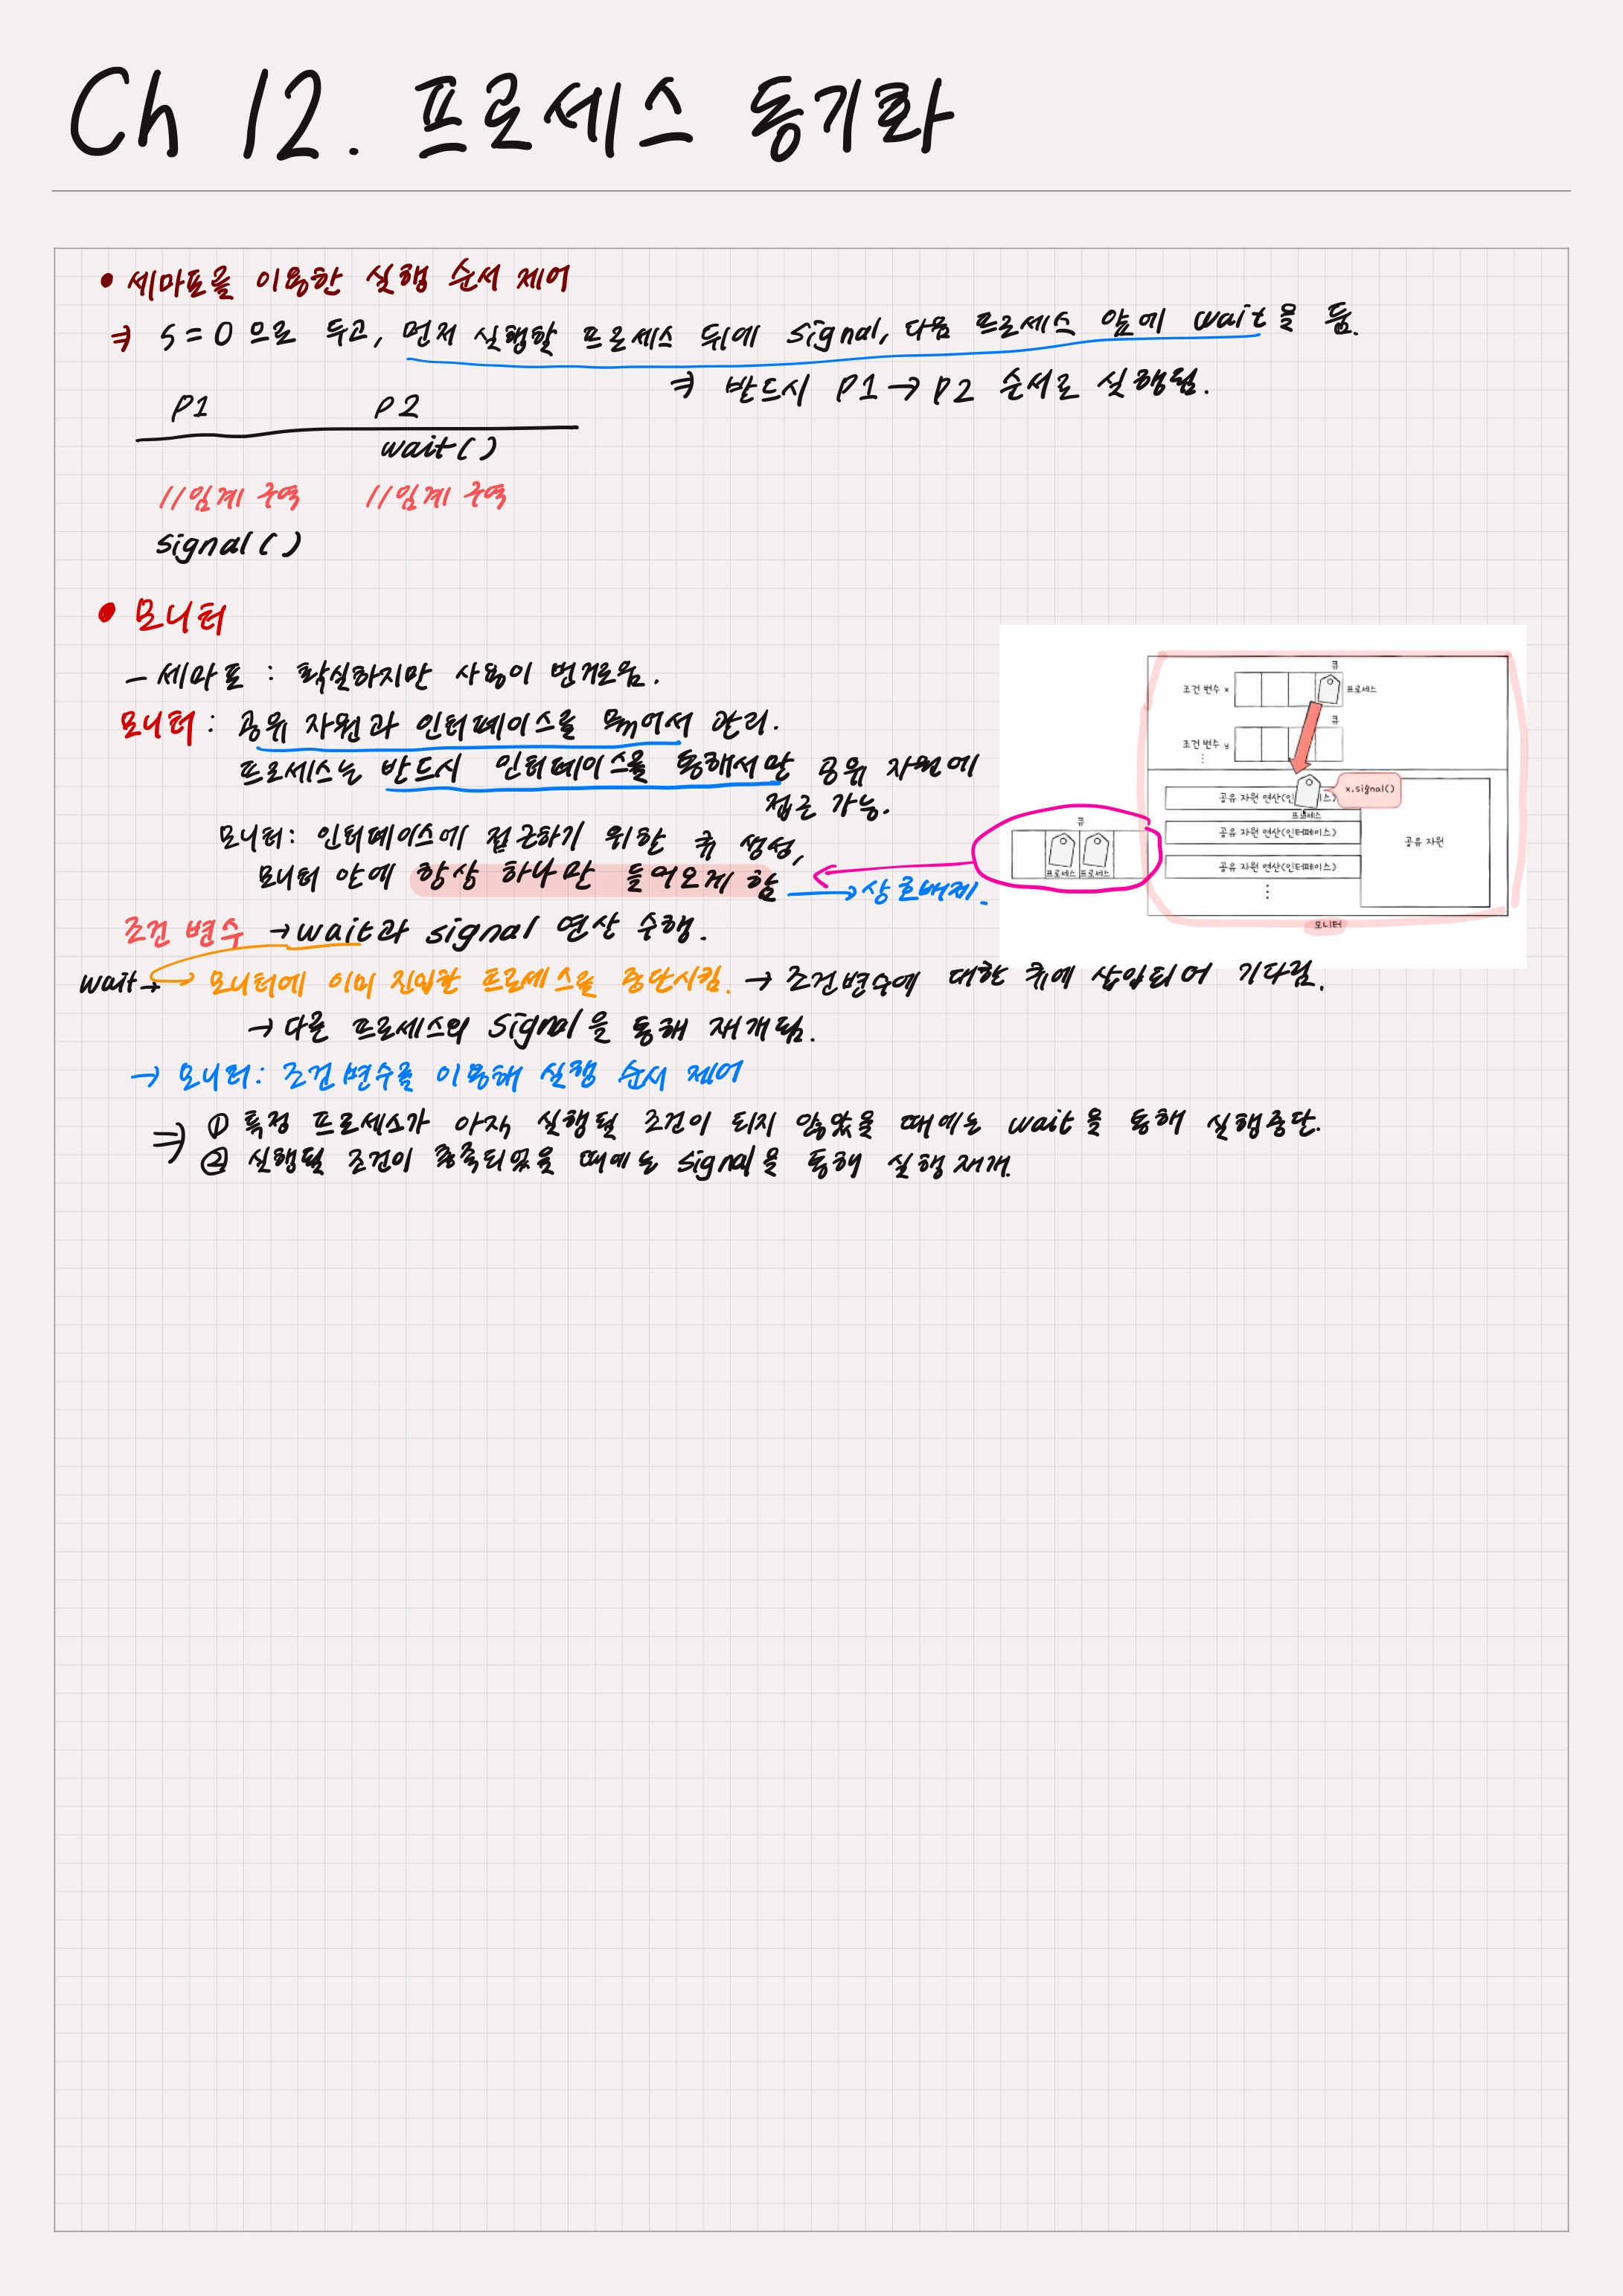 Ch 12. 프로세스 동기화
• 세마포를 이용한 실행 순서 제어
⇒ S=0 으로 두고, 먼저 실행할 프로세스 뒤에 signal, 다음 프로세스 앞에 wait을 둠.
⇒ 반드시 P1 → P2 순서로 실행됨.
P1 P2
wait()
//임계 구역 //임계 구역
signal()
• 모니터
- 세마포 : 확실하지만 사용이 번거로움.
모니터 : 공유 자원과 인터페이스를 묶어서 관리.
프로세스는 반드시 인터페이스를 통해서만 공유 자원에
접근 가능.
모니터: 인터페이스에 접근하기 위한 큐 생성,
모니터 안에 항상 하나만 들어오게 함 → 상호배제.
조건 변수 → wait과 signal 연산 수행.
wait → 모니터에 이미 진입한 프로세스를 중단시킴. → 조건변수에 대한 큐에 삽입되어 기다림.
→ 다른 프로세스의 signal을 통해 재개됨.
→ 모니터: 조건변수를 이용해 실행 순서 제어
⇒ ① 특정 프로세스가 아직 실행될 조건이 되지 않았을 때에는 wait을 통해 실행중단.
② 실행될 조건이 충족되었을 때에는 signal을 통해 실행재개.
큐
조건 변수 x 프로세스
큐
조건 변수 y
⋮
공유 자원 연산(인 스) x.signal()
프로세스
공유 자원 연산(인터페이스) 공유 자원
공유 자원 연산(인터페이스)
⋮
모니터
큐
프로세스 프로세스